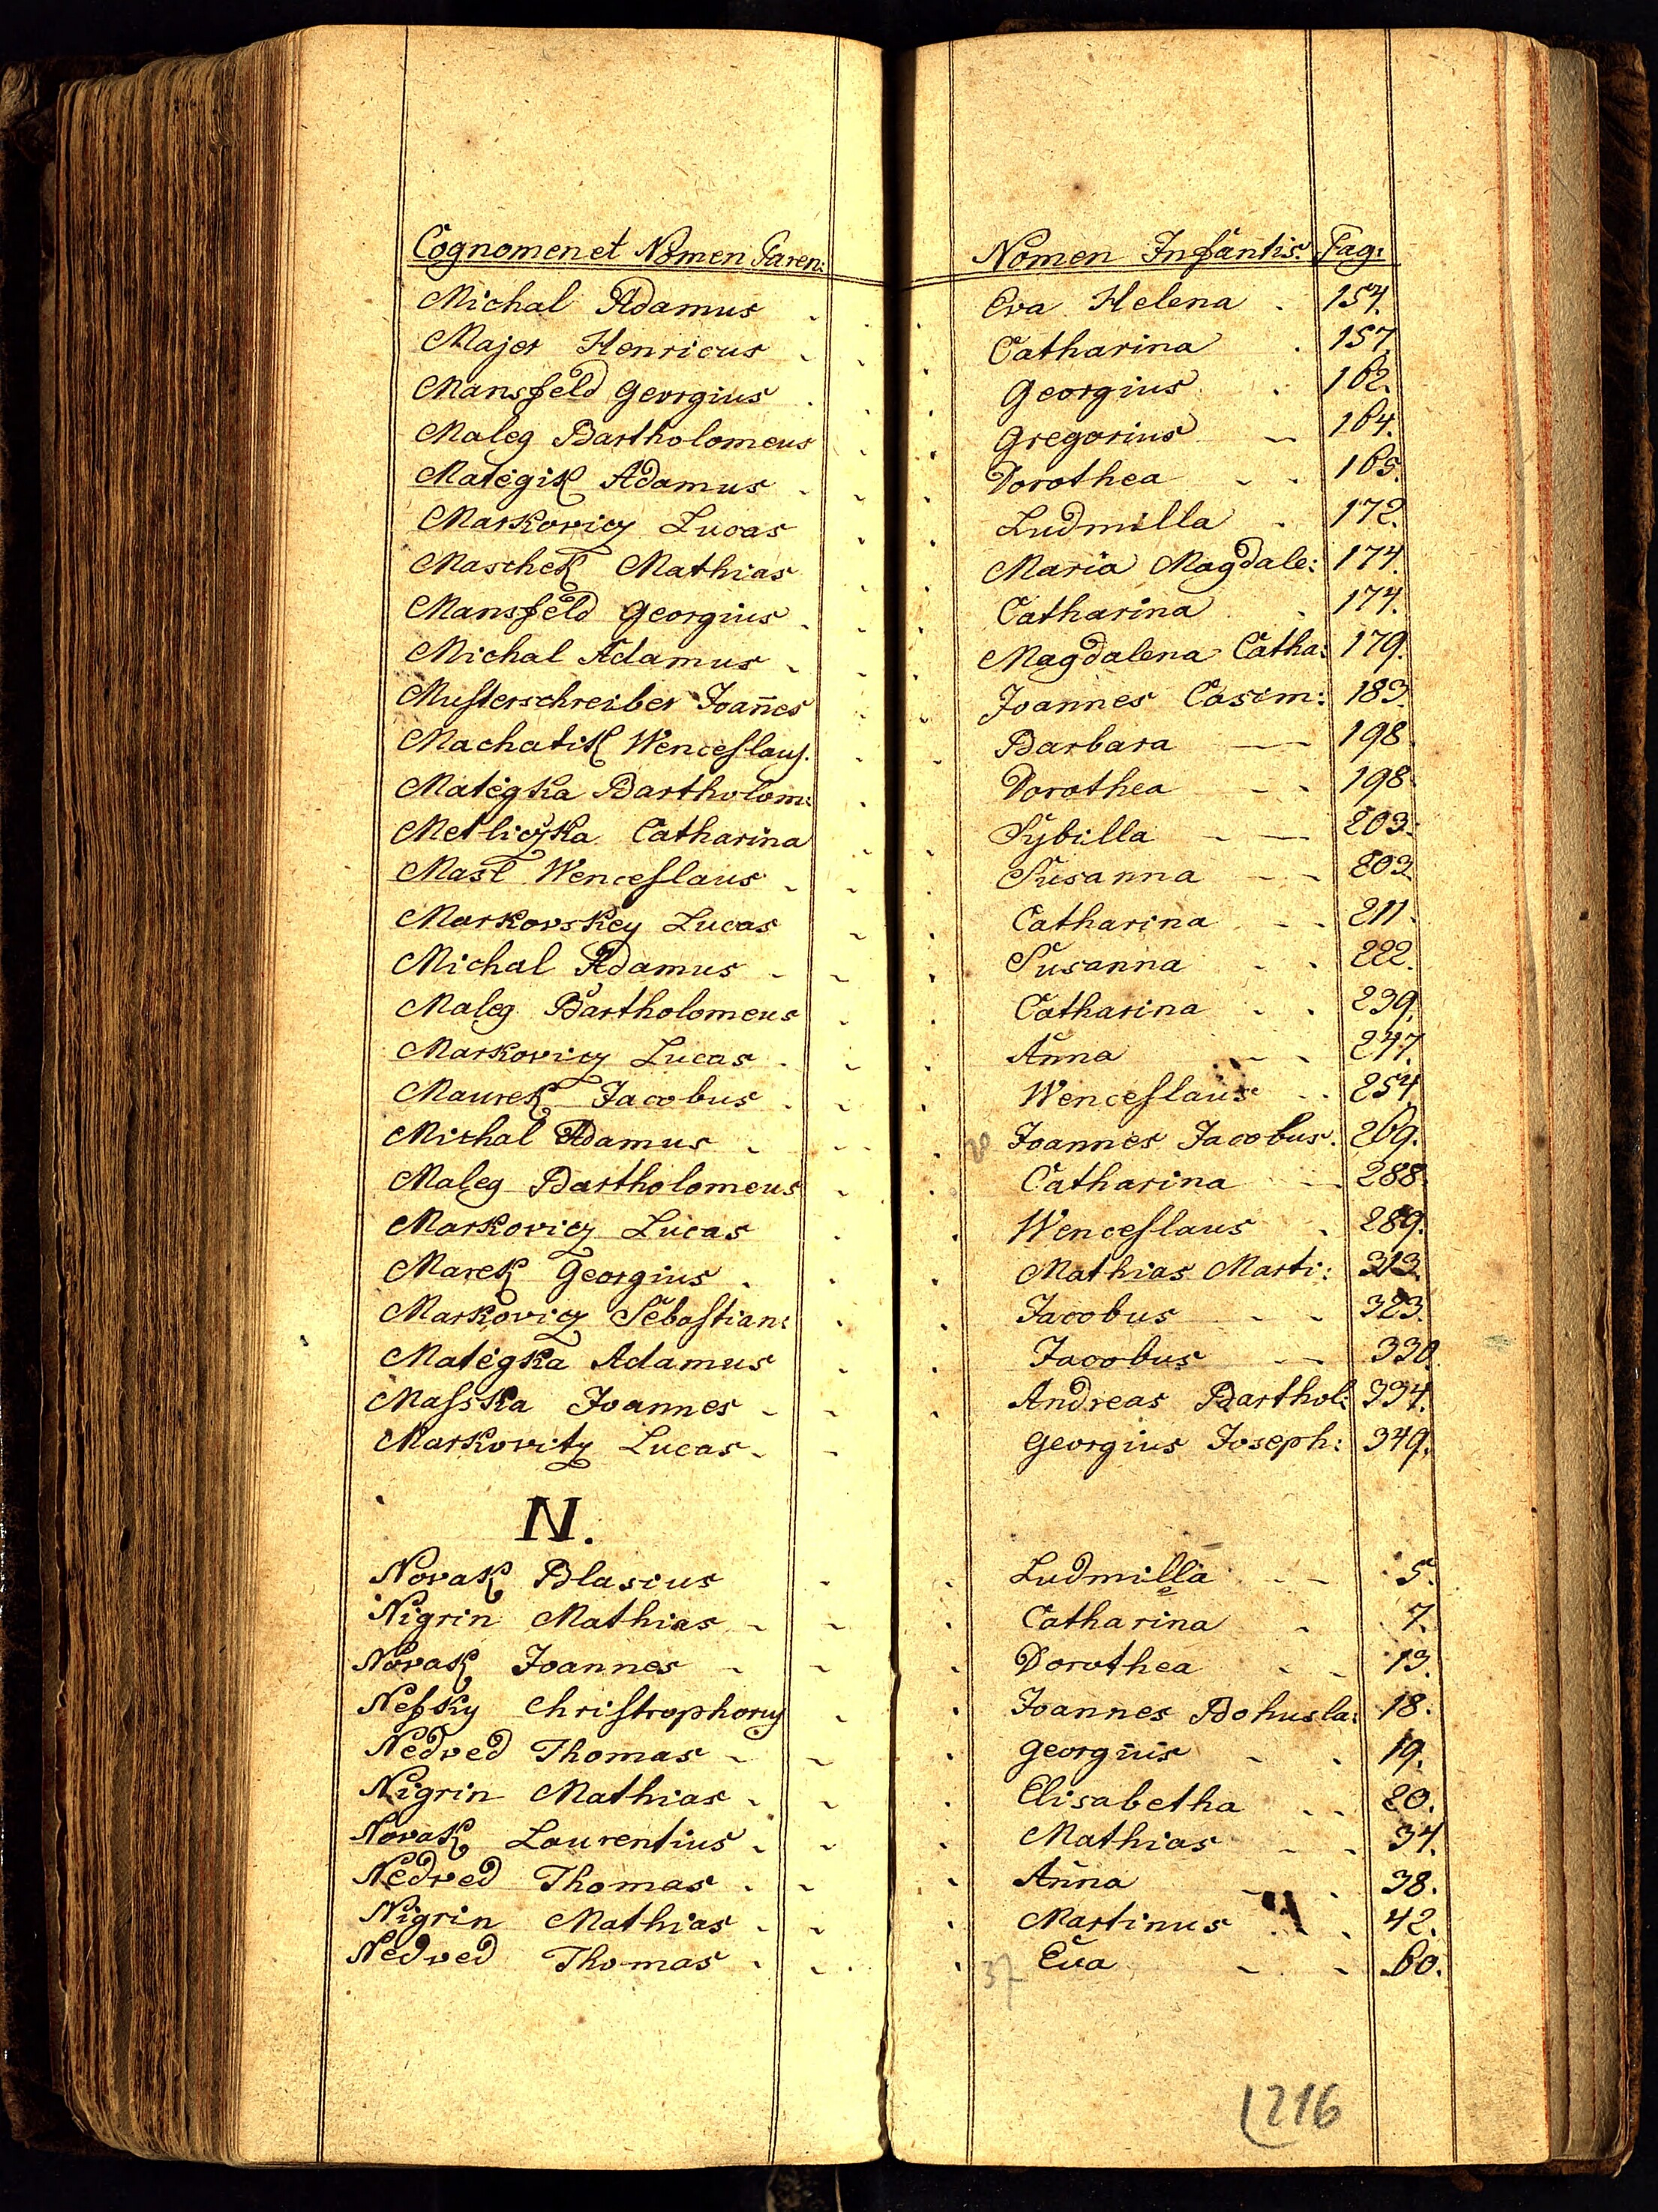 Cognomen et Nomen Paren: Nomen Infantis. Pag:
Michal Adamus Eva Helena 154.
Majer Henricus Catharina 157.
Mansfeld Georgius Georgius 162.
Maleg Bartholomeus Gregorius 164.
Matėgik Adamus Dorothea 165.
Markovicz Lucas Ludmilla 172.
Maschek Mathias Maria Magdale: 174.
Mansfeld Georgius Catharina 174.
Michal Adamus Magdalena Catha: 179.
Musterschreiber Joan̄es Joannes Casim: 183.
Machatik Wenceslaus. Barbara 198.
Matėgka Bartholom: Dorothea 198.
Metliczka Catharina Sybilla 203.
Masl Wenceslaus Susanna 203.
Markovskey Lucas Catharina 211.
Michal Adamus Susanna 222.
Maleg Bartholomeus Catharina 239.
Markovicz Lucas Anna 247.
Maurek Jacobus Wenceslaus 254.
Michal Adamus Joannes Jacobus. 269.
Maleg Bartholomeus Catharina 288.
Markovicz Lucas Wenceslaus 289.
Marek Georgius Mathias Marti: 313.
Markovicz Sebastian: Jacobus 323.
Matėgka Adamus Jacobus 330.
Masska Joannes Andreas Barthol: 334.
Markovitz Lucas Georgius Joseph: 349.
N.
Novak Blasius Ludmilla 5.
Nigrin Mathias Catharina 7.
Novak Joannes Dorothea 13.
Nessky Christrophorus Joannes Bohusla: 18.
Nedved Thomas Georgius 19.
Nigrin Mathias Elisabetha 20.
Novak Laurentius Mathias 34.
Nedved Thomas Anna 38.
Nigrin Mathias Martinus 42.
Nedved Thomas 37 Eva 60.
216